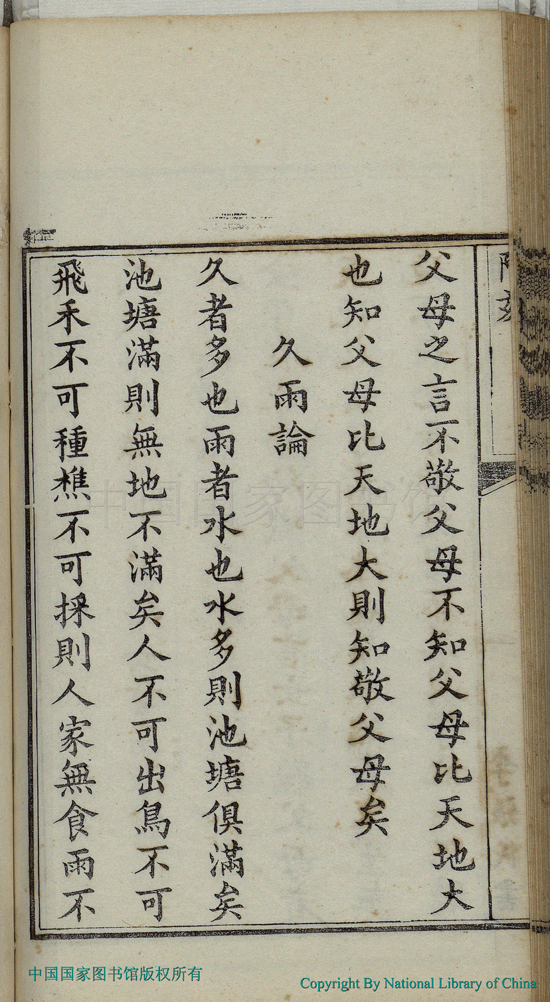 父母之言不敬父母不知父母比天地大
也知父母比天地大則知敬父母矣
久雨論
久者多也雨者水也水多則池塘俱滿矣
池塘滿則無地不滿矣人不可出鳥不可
飛禾不可種樵不可採則人家無食雨不
中国国家图书馆
中国国家图书馆版权所有
Copyright By National Library of China